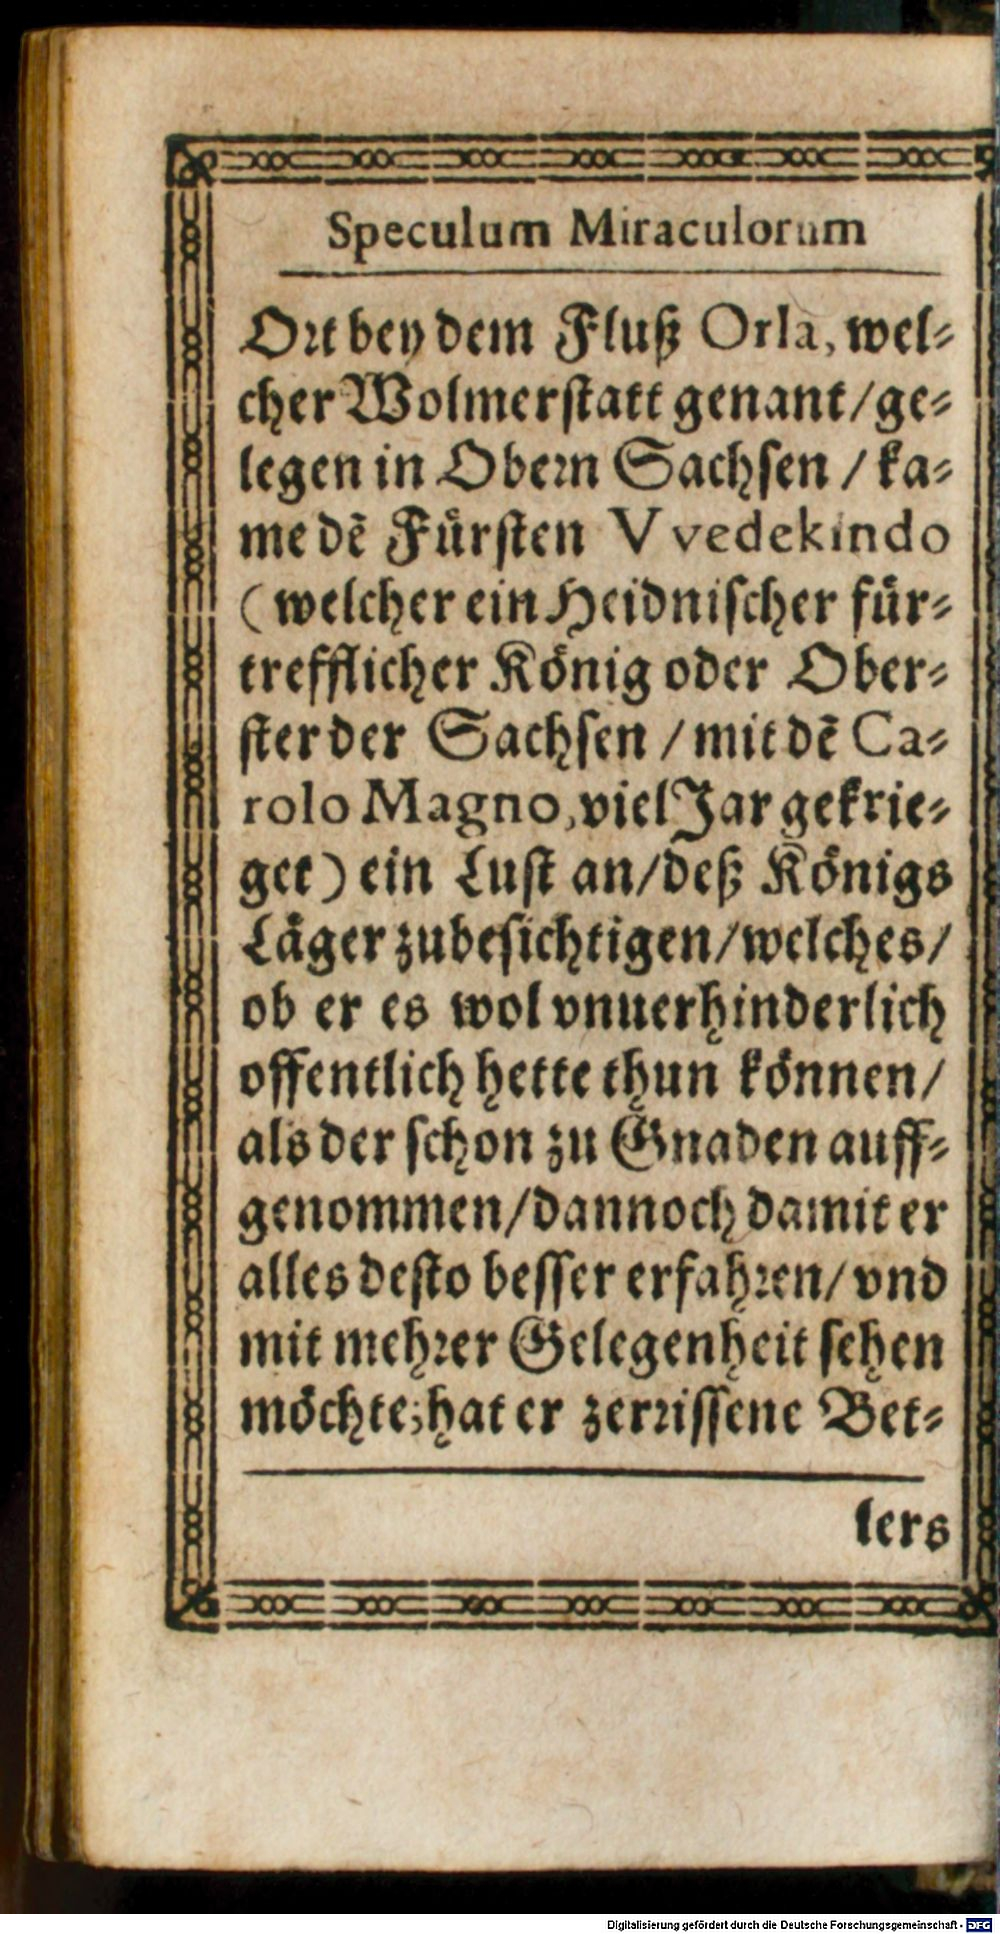 Speculum Miraculorum
Ort bey dem Fluß Orla, wel-
cher Wolmerstatt genant/ge-
legen in Obern Sachsen / ka-
me dẽ Fürsten VVvedekindo
(welcher ein Heidnischer für-
trefflicher König oder Ober-
ster der Sachsen / mit dẽ Ca-
rolo Magno, viel Jar gekrie-
get) ein Lust an/deß Königs
Läger zubesichtigen/welches/
ob er es wol vnuerhinderlich
offentlich hette thun können/
als der schon zu Gnaden auff-
genommen/dannoch damit er
alles desto besser erfahren/vnd
mit mehrer Gelegenheit sehen
möchte;hat er zerrissene Bet-
lers
Digitalisierung gefördert durch die Deutsche Forschungsgemeinschaft - DFG